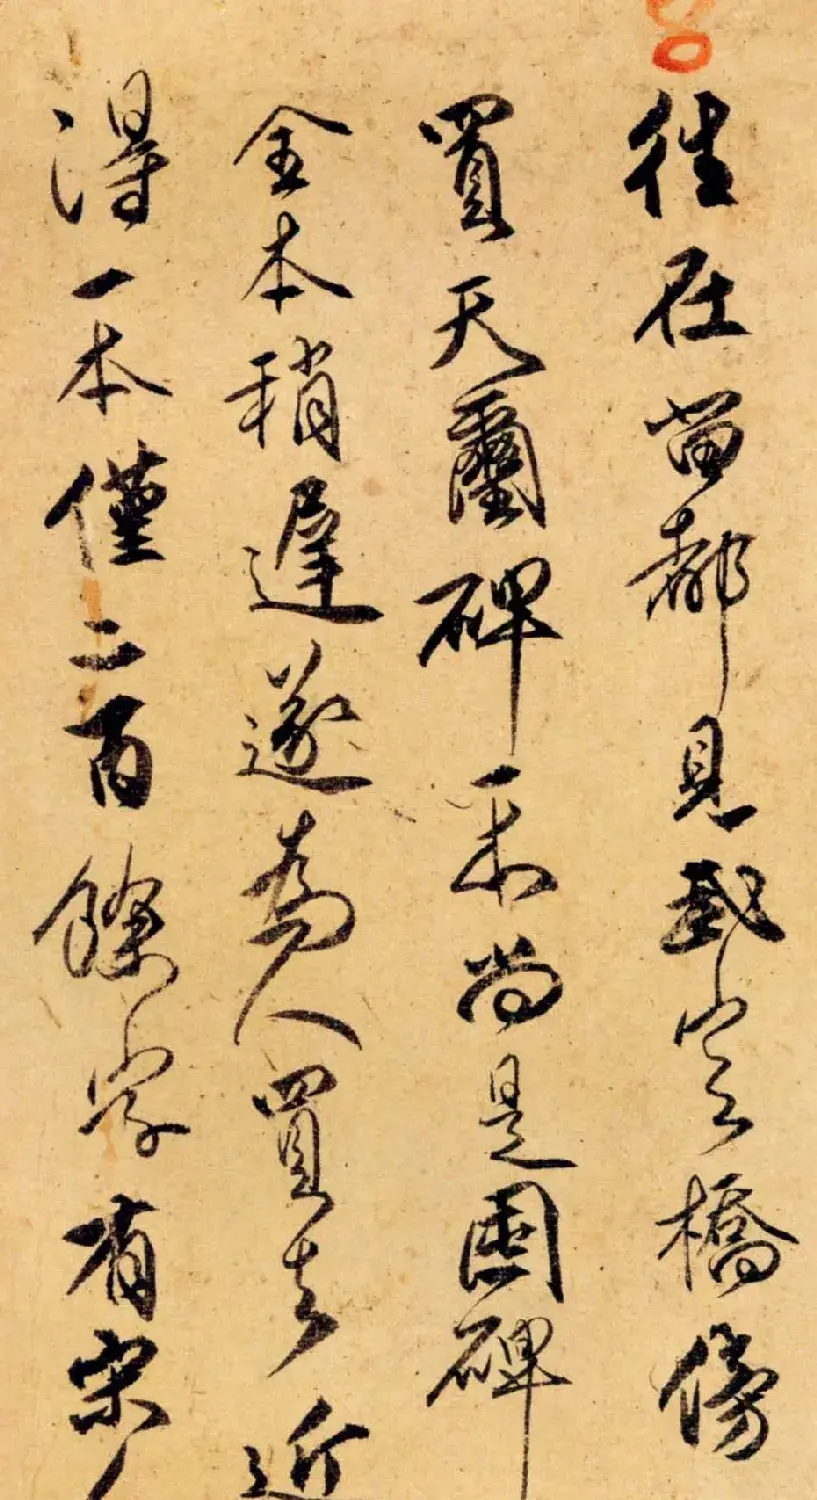 往在留都見武定橋傍
買天璽碑一本尚是碑
全本稍遲遂爲人買去近
得一本僅二百餘字有宋人